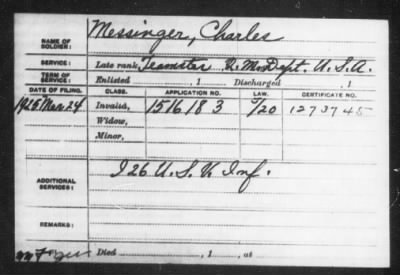 NAME OF SOLDIER: Messinger, Charles
SERVICE: Late rank, Teamster Q. M. Dept. U. S. A.
TERM OF SERVICE: Enlisted , 1 Discharged , 1
DATE OF FILING. CLASS. APPLICATION NO. LAW. CERTIFICATE NO.
1925 Mar. 24 Invalid, 1516183 5/20 1273745
Widow,
Minor,
ADDITIONAL SERVICES: I 26 U. S. V. Inf.
REMARKS:
Died , 1 , at